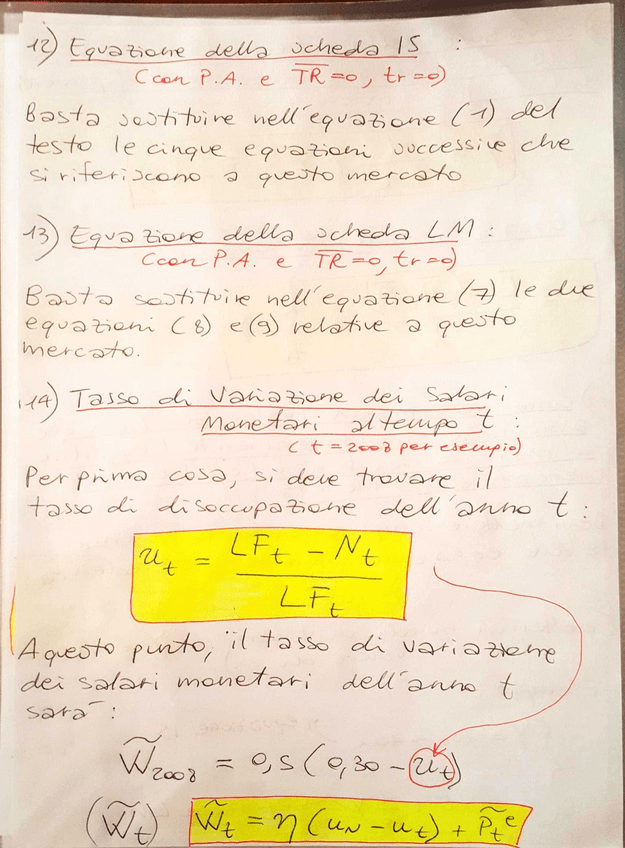 12) Equazione della scheda IS :
(con P.A. e T̅R̅=0, tr=0)
Basta sostituire nell'equazione (1) del
testo le cinque equazioni successive che
si riferiscono a questo mercato
13) Equazione della scheda LM :
(con P.A. e T̅R̅=0, tr=0)
Basta sostituire nell'equazione (7) le due
equazioni (8) e (9) relative a questo
mercato.
14) Tasso di Variazione dei Salari
Monetari al tempo t :
(t = 2008 per esempio)
Per prima cosa, si deve trovare il
tasso di disoccupazione dell'anno t :
u_t = (LF_t - N_t) / LF_t
A questo punto, il tasso di variazione
dei salari monetari dell'anno t
sarà :
W̃_2008 = 0,5 (0,30 - u_t)
(W̃_t) W̃_t = η (u_N - u_t) + P̃_t^e